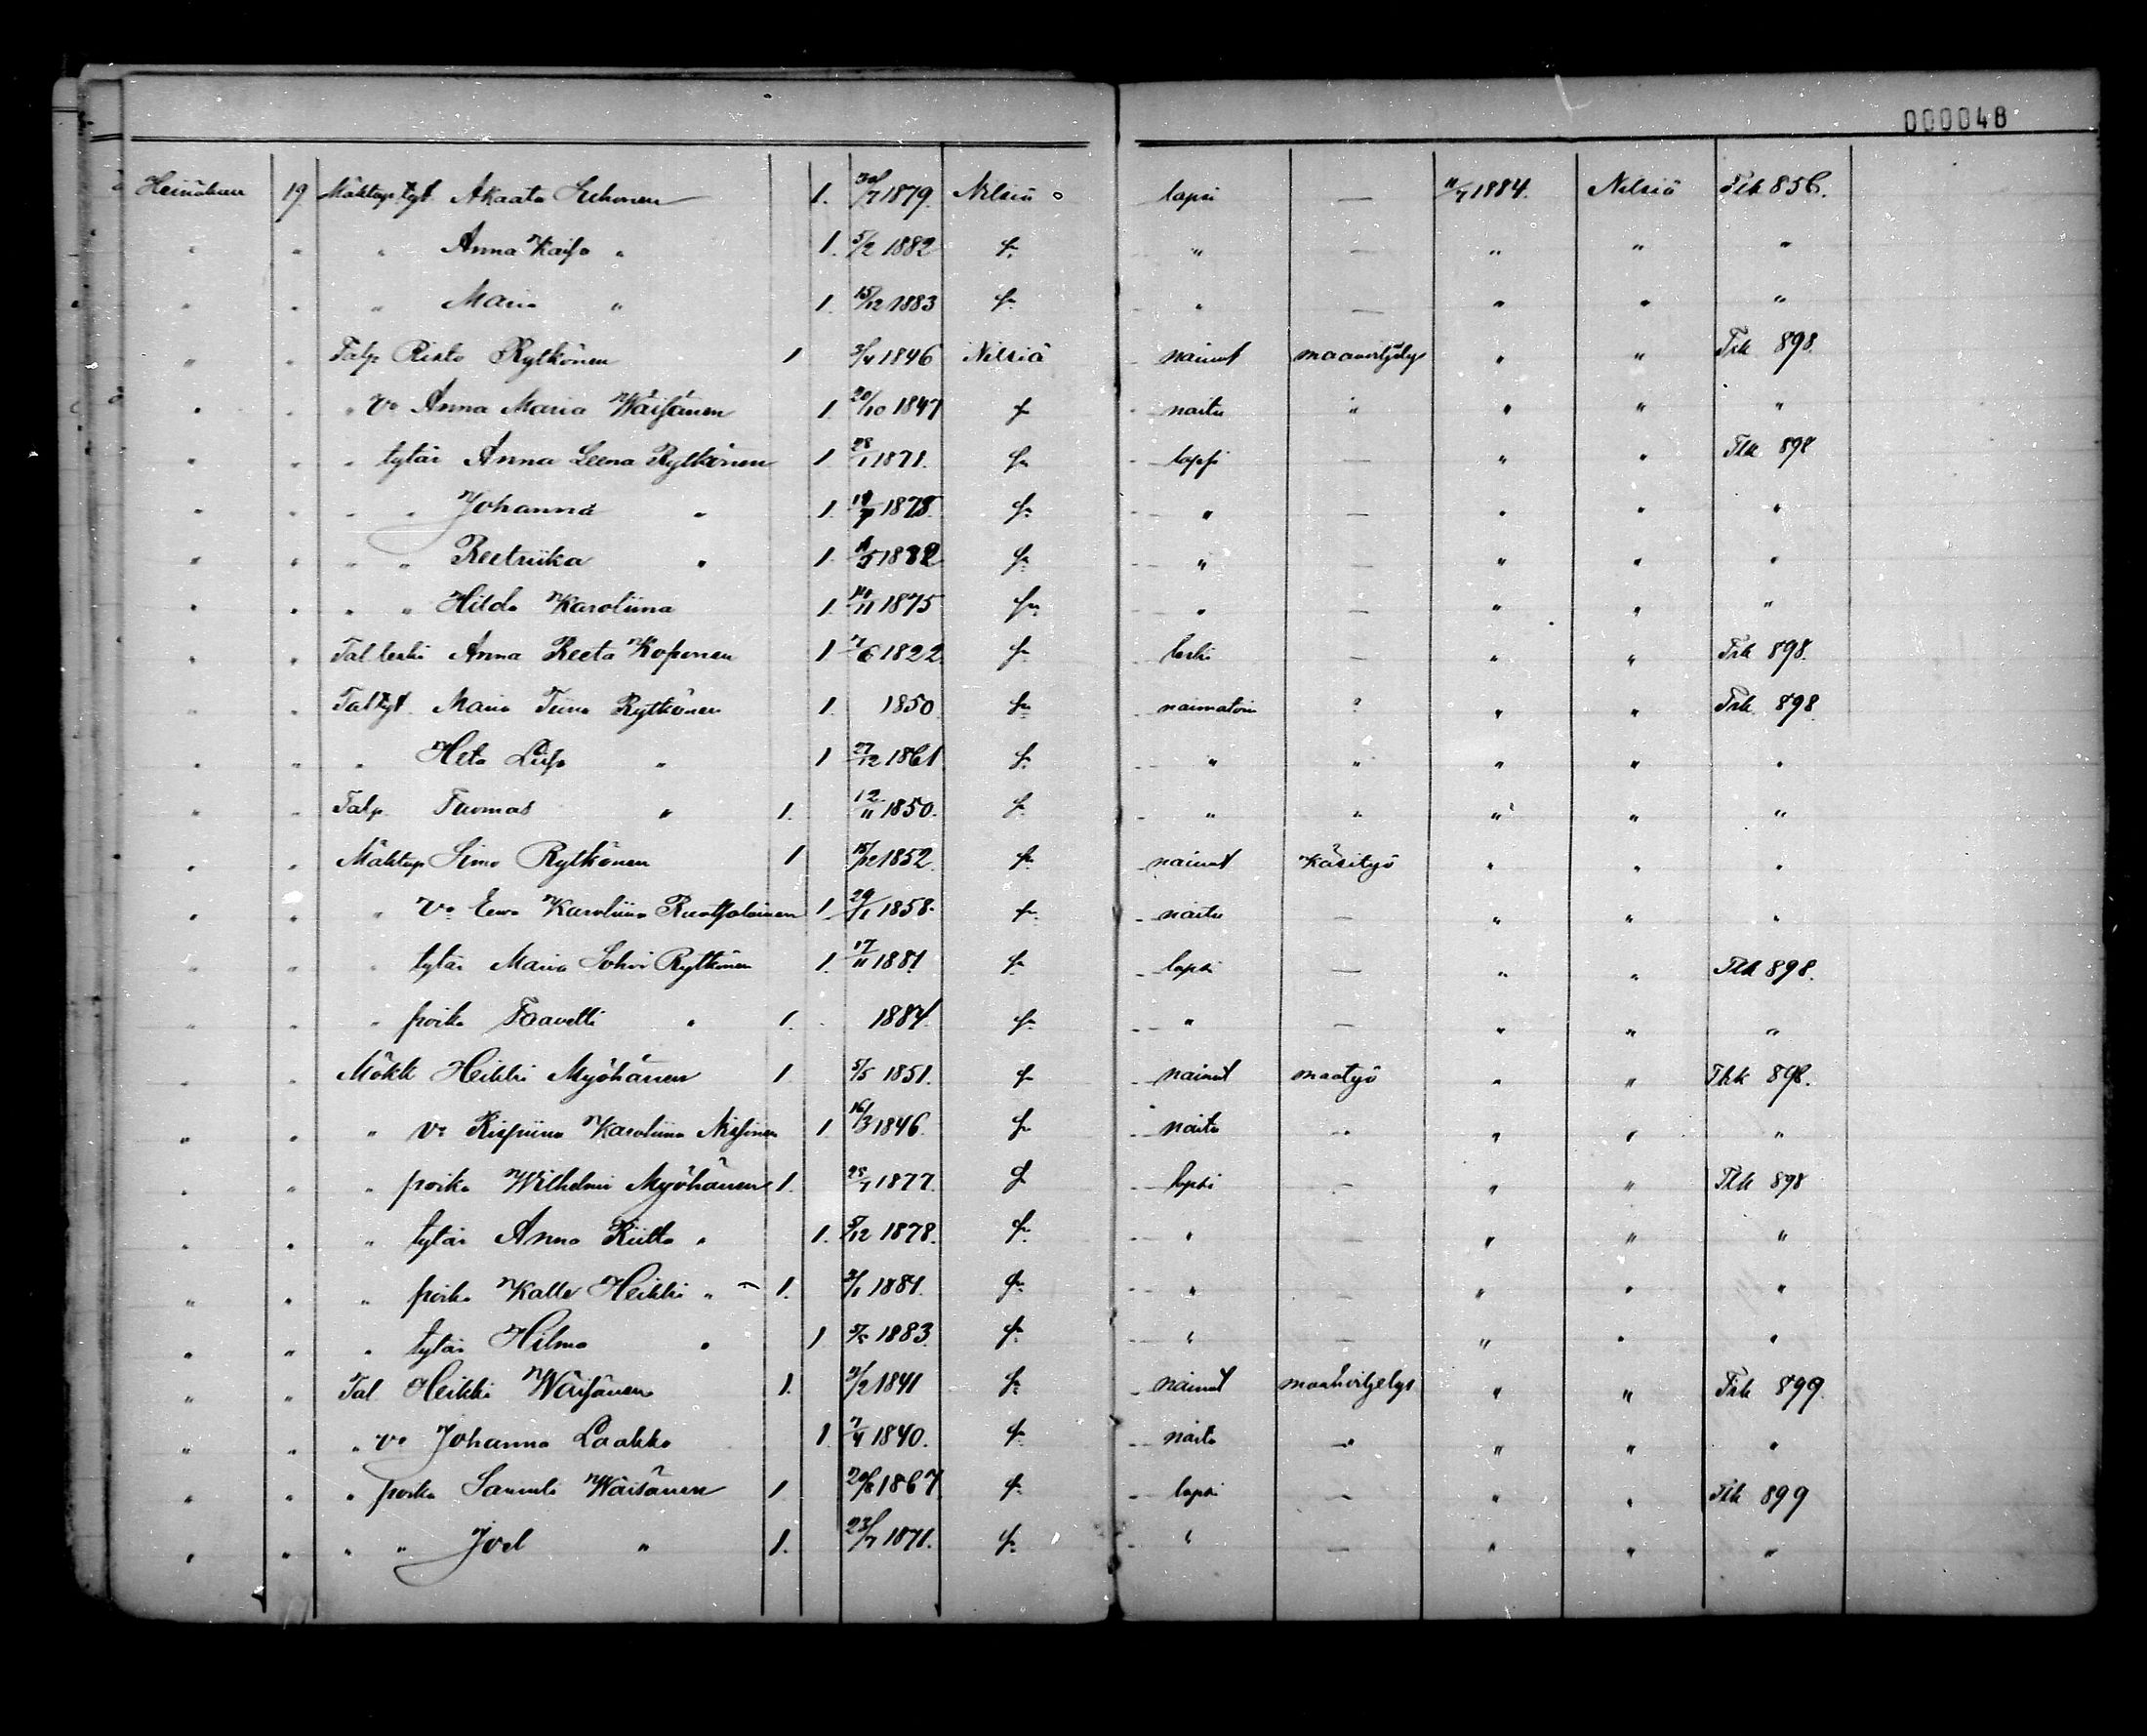 000048
19 Akaata 1. 1879. Nilsiä lapsi — 11/7 1884. Nilsiä Tlk 856.
" " " Anna Kaisa " 1. 5/2 1882 " — " " "
" " " Maria " 1. 15/12 1883 " — " " "
" " Talp Risto Rytkönen 1 3/4 1846 Nilsiä nainut maanviljelys " " Trk 898.
" " " Vo Anna Maria Wäisänen 1. 20/10 1847 naitu " " " "
" " " tytär Anna Leena Rytkönen 1. 28/1 1871. lapsi — " " Tlk 898
" " " " Johanna " 1. 1878. " — " " "
" " " " Reetriika " 1. 1882 " — " " "
" " " " Hilda Karoliina 1. 1875 " — " " "
" " Talleski Anna Reeta Koponen 1 7/6 1822 leski — " " Trk 898.
" " Taltyt. Maria Tiina Rytkönen 1. 1850. naimatoin " " Trk 898
" " " Heta Liisa " 1 27/12 1861. " " " " "
" " Talp. Tuomas " 1. 12/11 1850. " " " " "
" " Simo Rytkönen 1 15/12 1852. nainut Käsityö " " "
" " " Vo Eeva Karoliina 1. 29/1 1858. naitu — " " "
" " " tytär Maria Sohvi Rytkönen 1. 17/11 1881 lapsi — " " Tlk 898.
" " " poika Taavetti " 1. 1884. " — " " "
" " Mökk Heikki Myöhänen 1 5/5 1851. nainut maatyö " " Trk 898.
" " " Vo Karoliina 1. 16/3 1846. naitu " " "
" " " poika Wilhelmi Myöhänen 1. 1877. lapsi — " " Tlk 898
" " " tytär Anna Riitta " 1. 5/12 1878. " — " " "
" " " poika Kalle Heikki " 1. 1881. " — " " "
" " " tytär Hilma " 1 1883. " — " " "
" " Tal Heikki Wäisänen 1. 1841 nainut maanviljelys " " Trk 899.
" " " vo Johanna Laakko 1. 7/4 1840. naitu " " "
" " " poika Samuli Wäisänen 1 1867 lapsi — " " Tlk 899
" " " " Joel " 1. 23/7 1871. " — " " "